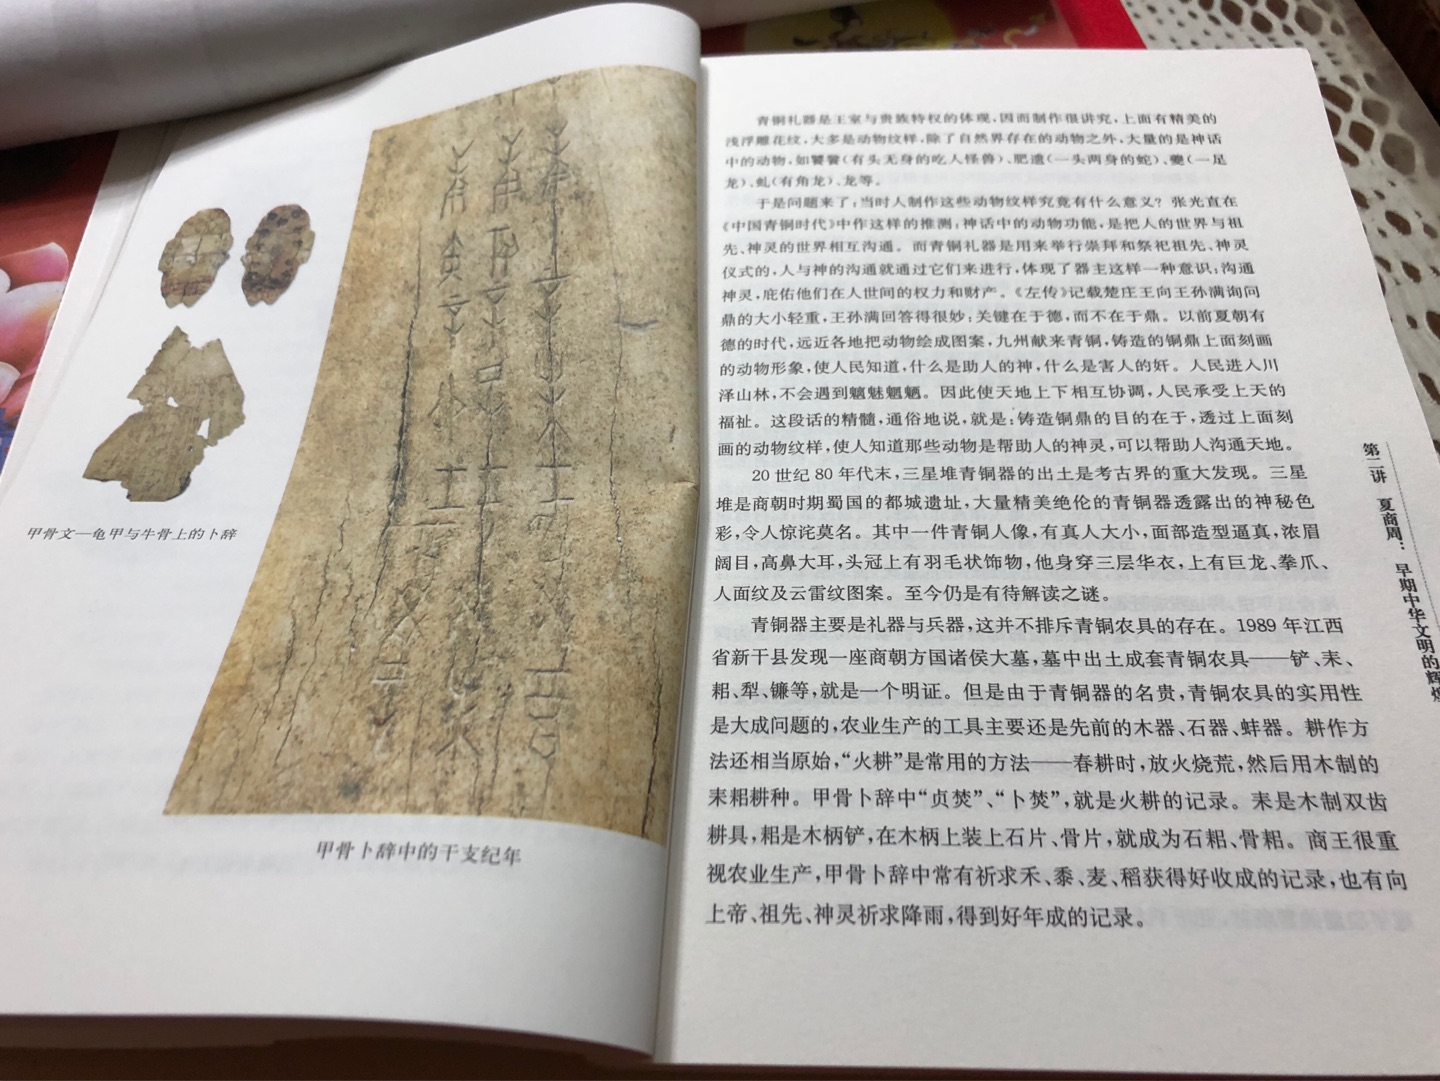 甲骨文—龟甲与牛骨上的卜辞
甲骨卜辞中的干支纪年
青铜礼器是王室与贵族特权的体现,因而制作很讲究,上面有精美的
浅浮雕花纹,大多是动物纹样,除了自然界存在的动物之外,大量的是神话
中的动物,如饕餮(有头无身的吃人怪兽)、肥遗(一头两身的蛇)、夔(一足
龙)、虬(有角龙)、龙等。
于是问题来了:当时人制作这些动物纹样究竟有什么意义?张光直在
《中国青铜时代》中作这样的推测:神话中的动物功能,是把人的世界与祖
先、神灵的世界相互沟通。而青铜礼器是用来举行崇拜和祭祀祖先、神灵
仪式的,人与神的沟通就通过它们来进行,体现了器主这样一种意识:沟通
神灵,庇佑他们在人世间的权力和财产。《左传》记载楚庄王向王孙满询问
鼎的大小轻重,王孙满回答得很妙:关键在于德,而不在于鼎。以前夏朝有
德的时代,远近各地把动物绘成图案,九州献来青铜,铸造的铜鼎上面刻画
的动物形象,使人民知道,什么是助人的神,什么是害人的奸。人民进入川
泽山林,不会遇到魑魅魍魉。因此使天地上下相互协调,人民承受上天的
福祉。这段话的精髓,通俗地说,就是:铸造铜鼎的目的在于,透过上面刻
画的动物纹样,使人知道那些动物是帮助人的神灵,可以帮助人沟通天地。
20世纪80年代末,三星堆青铜器的出土是考古界的重大发现。三星
堆是商朝时期蜀国的都城遗址,大量精美绝伦的青铜器透露出的神秘色
彩,令人惊诧莫名。其中一件青铜人像,有真人大小,面部造型逼真,浓眉
阔目,高鼻大耳,头冠上有羽毛状饰物,他身穿三层华衣,上有巨龙、拳爪、
人面纹及云雷纹图案。至今仍是有待解读之谜。
青铜器主要是礼器与兵器,这并不排斥青铜农具的存在。1989年江西
省新干县发现一座商朝方国诸侯大墓,墓中出土成套青铜农具——铲、耒、
耜、犁、镰等,就是一个明证。但是由于青铜器的名贵,青铜农具的实用性
是大成问题的,农业生产的工具主要还是先前的木器、石器、蚌器。耕作方
法还相当原始,“火耕”是常用的方法——春耕时,放火烧荒,然后用木制的
耒耜耕种。甲骨卜辞中“贞焚”、“卜焚”,就是火耕的记录。耒是木制双齿
耕具,耜是木柄铲,在木柄上装上石片、骨片,就成为石耜、骨耜。商王很重
视农业生产,甲骨卜辞中常有祈求禾、黍、麦、稻获得好收成的记录,也有向
上帝、祖先、神灵祈求降雨,得到好年成的记录。
第二讲 夏商周:早期中华文明的辉